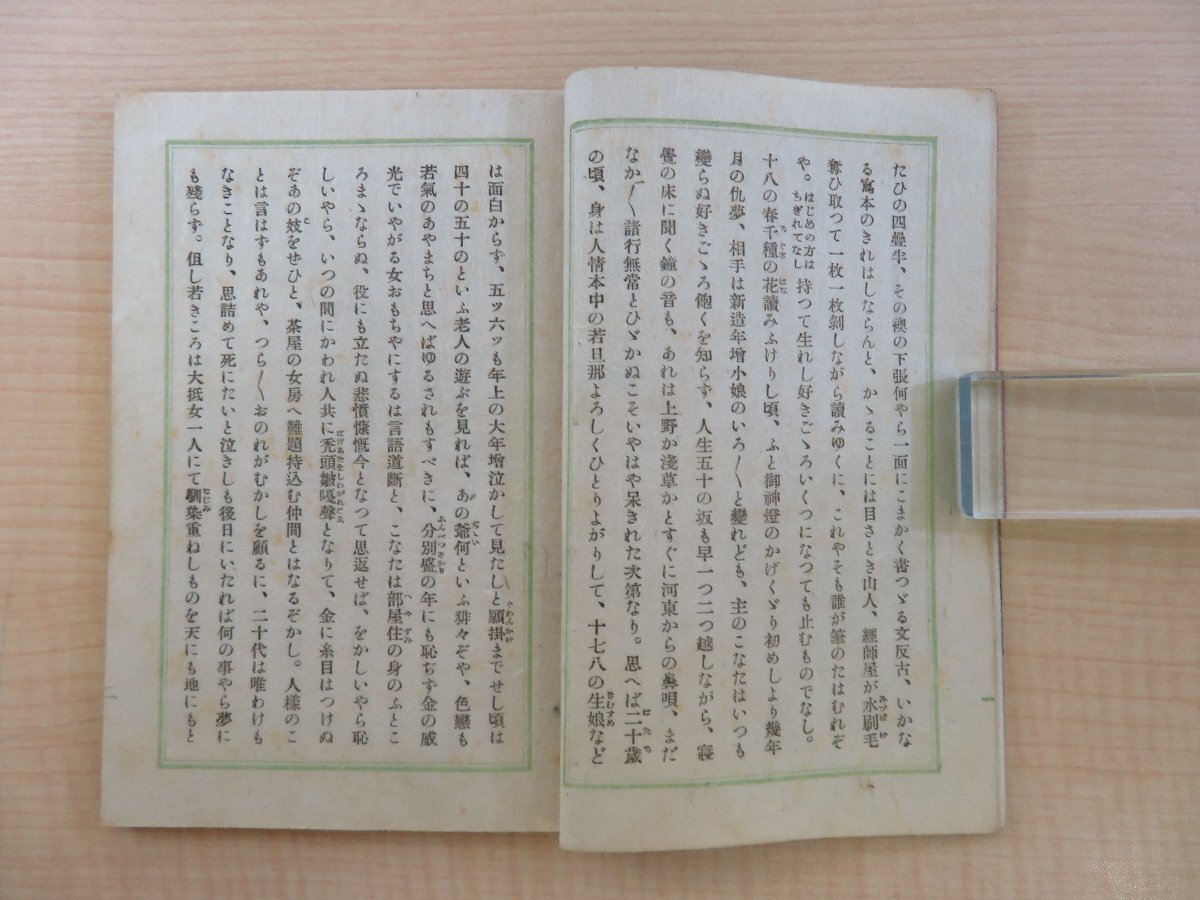 たひの四疊半、その襖の下張何やら一面にこまかく書つゞる文反古、いかな
る寫本のきれはしならんと、かゝることには目さとき山人、經師屋が水刷毛
奪ひ取つて一枚一枚剝しながら讀みゆくに、これやそも誰が筆のたはむれぞ
や。はじめの方はちぎれてなし 持つて生れし好きごゝろいくつになつても止むものでなし。
十八の春千種の花讀みふけりし頃、ふと御神燈のかげくゞり初めしより幾年
月の仇夢、相手は新造年增小娘のいろ〳〵と變れども、主のこなたはいつも
變らぬ好きごゝろ飽くを知らず、人生五十の坂も早一つ二つ越しながら、寢
覺の床に聞く鐘の音も、あれは上野か淺草かとすぐに河東からの鼻唄、まだ
なか〳〵諸行無常とひゞかぬこそいやはや呆きれた次第なり。思へば二十歲
の頃、身は人情本中の若旦那よろしくひとりよがりして、十七八の生娘など
は面白からず、五ッ六ッも年上の大年增泣かして見たしと願掛までせし頃は
四十の五十のといふ老人の遊ぶを見れば、あの爺何といふ狒々ぞや、色戀も
若氣のあやまちと思へばゆるされもすべきに、分別盛の年にも恥ぢず金の威
光でいやがる女おもちやにするは言語道斷と、こなたは部屋住の身のふとこ
ろまゝならぬ、役にも立たぬ悲憤慷慨今となつて思返せば、をかしいやら恥
しいやら、いつの間にかわれ人共に禿頭皺嗄聲となりて、金に糸目はつけぬ
ぞあの妓をぜひと、茶屋の女房へ難題持込む仲間とはなるぞかし。人樣のこ
とは言はずもあれや、つら〳〵おのれがむかしを顧るに、二十代は唯わけも
なきことなり、思詰めて死にたいと泣きしも後日にいたれば何の事やら夢に
も殘らず。但し若きころは大抵女一人にて馴染重ねしものを天にも地にもと